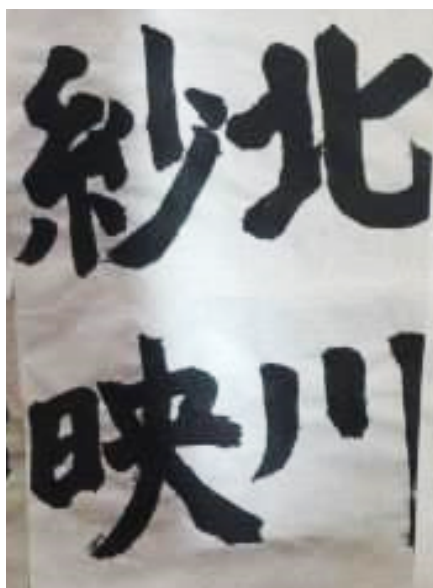 北川
紗映